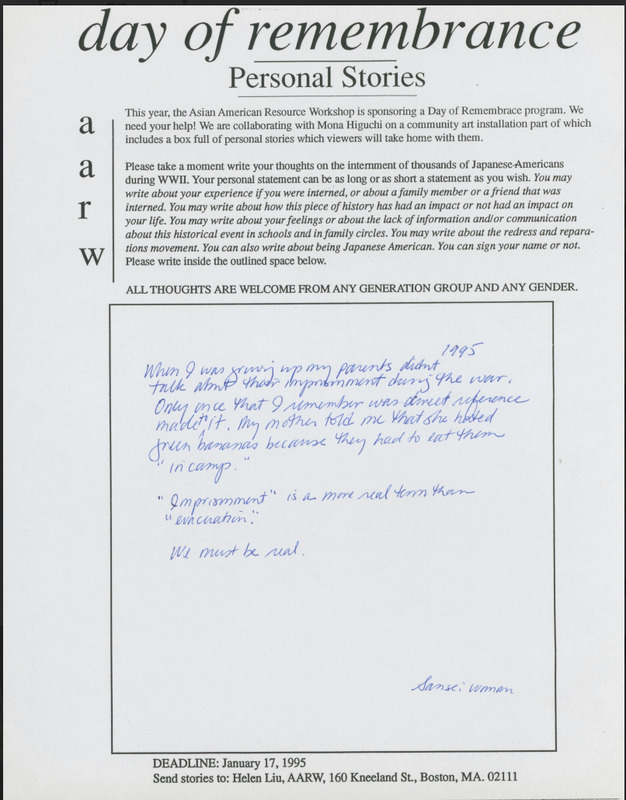 day of remembrance
Personal Stories
a
a
r
w
This year, the Asian American Resource Workshop is sponsoring a Day of Remembrace program. We
need your help! We are collaborating with Mona Higuchi on a community art installation part of which
includes a box full of personal stories which viewers will take home with them.
Please take a moment write your thoughts on the internment of thousands of Japanese-Americans
during WWII. Your personal statement can be as long or as short a statement as you wish. You may
write about your experience if you were interned, or about a family member or a friend that was
interned. You may write about how this piece of history has had an impact or not had an impact on
your life. You may write about your feelings or about the lack of information and/or communication
about this historical event in schools and in family circles. You may write about the redress and repara-
tions movement. You can also write about being Japanese American. You can sign your name or not.
Please write inside the outlined space below.
ALL THOUGHTS ARE WELCOME FROM ANY GENERATION GROUP AND ANY GENDER.
1995
When I was growing up my parents didnt
talk about their imprisonment during the war.
Only once that I remember was direct reference
made it. My mother told me that she hated
green bananas because they had to eat them
"in camp."
"Imprisonment" is a more real term than
"evacuation."
We must be real.
Sansei woman
DEADLINE: January 17, 1995
Send stories to: Helen Liu, AARW, 160 Kneeland St., Boston, MA. 02111